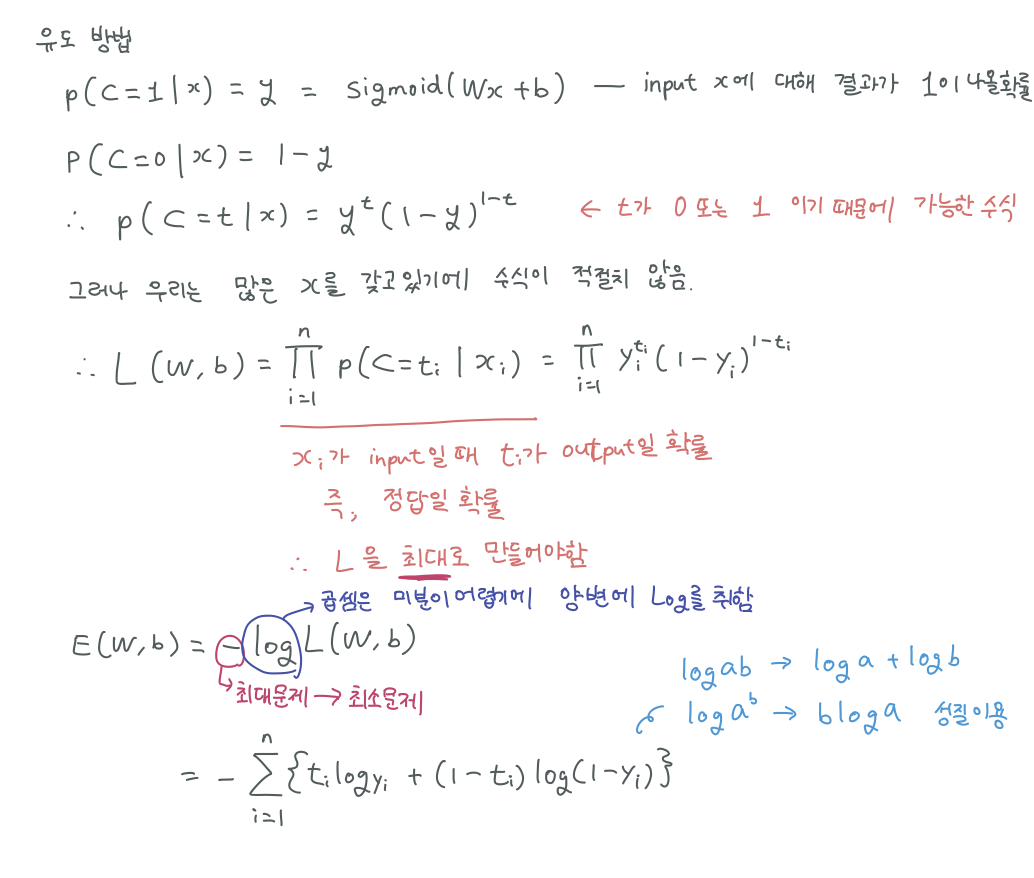 유도 방법
p(C=1|x) = y = sigmoid(Wx+b) — input x에 대해 결과가 1이 나올확률
P(C=0|x) = 1-y
∴ p(C=t|x) = y^t(1-y)^{1-t} ← t가 0 또는 1 이기 때문에 가능한 수식
그러나 우리는 많은 x를 갖고있기에 수식이 적절치 않음.
∴ L(W,b) = ∏_{i=1}^{n} p(C=t_i|x_i) = ∏_{i=1}^{n} y_i^{t_i}(1-y_i)^{1-t_i}
x_i가 input일 때 t_i가 output일 확률
즉, 정답일 확률
∴ L을 최대로 만들어야함
곱셈은 미분이어렵기에 양변에 Log를 취함
E(W,b) = -log L(W,b)
최대문제 → 최소문제
log ab → log a + log b
log a^b → b log a 성질이용
= - ∑_{i=1}^{n} {t_i log y_i + (1-t_i) log(1-y_i)}